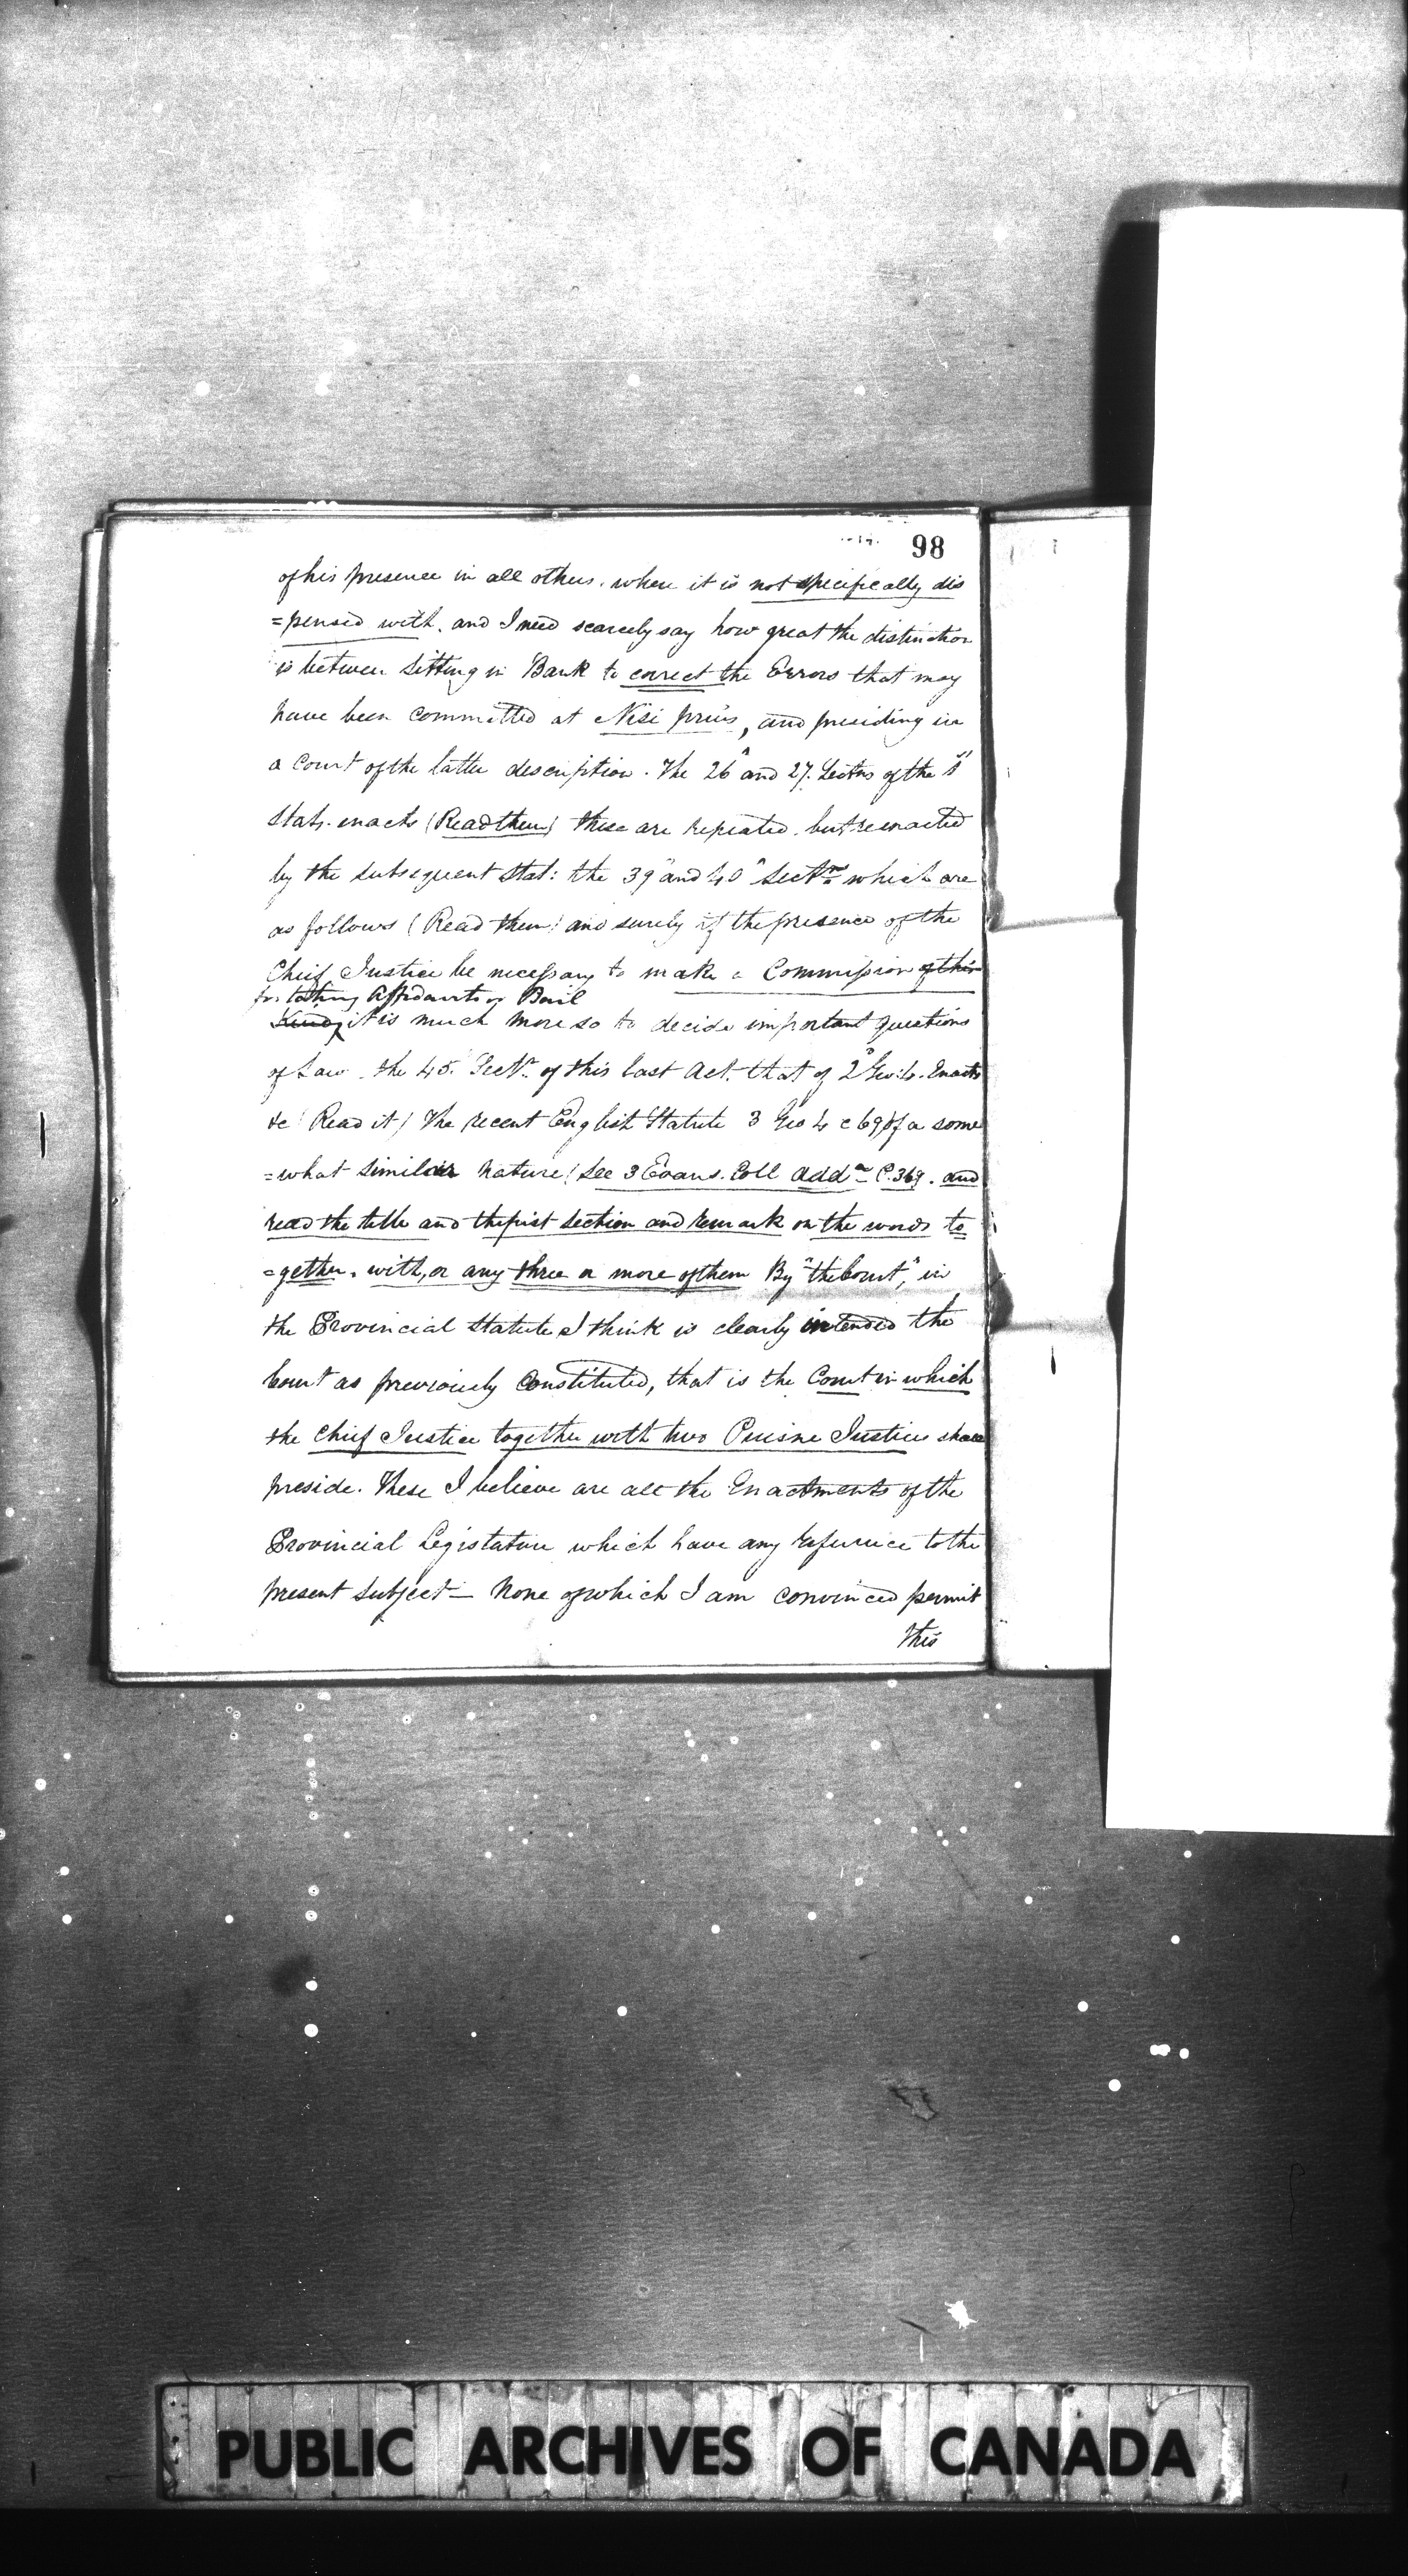 98
of his presence in all others, where it is not specifically dis
=pensed with, and I need scarcely say how great the distinction
is between sitting in Bank to correct the Errors that may
have been committed at Nisi prius, and presiding in
a Court of the latter description. The 26" and 27. Sectns of the
Stat. enacts (Read them) these are repeated, but reenacted
by the subsequent Stat: the 39" and 40" Sectns which are
as follows (Read them) and surely if the presence of the
Chief Justice be necessary to make a Commission of this
for taking Affidavits or Bail
Kind, it is much more so to decide important questions
of Law. the 45. Sectn. of this last Act. that of 2" Geo: 4. Enacts
&c (Read it) The recent English Statute 3 Geo 4 c 69 of a some
=what similar nature (See 3 Evans. Coll Addn P. 369. and
read the title and the first section and remark on the words to
=gether, with, or any three or more of them By "the Court", in
the Provincial Statute I think is clearly intended the
Court as previously Constituted, that is the Court in which
the Chief Justice together with two Puisne Justices shall
preside. These I believe are all the Enactments of the
Provincial Legistature which have any reference to the
present subject — None of which I am convinced permit
this
PUBLIC ARCHIVES OF CANADA